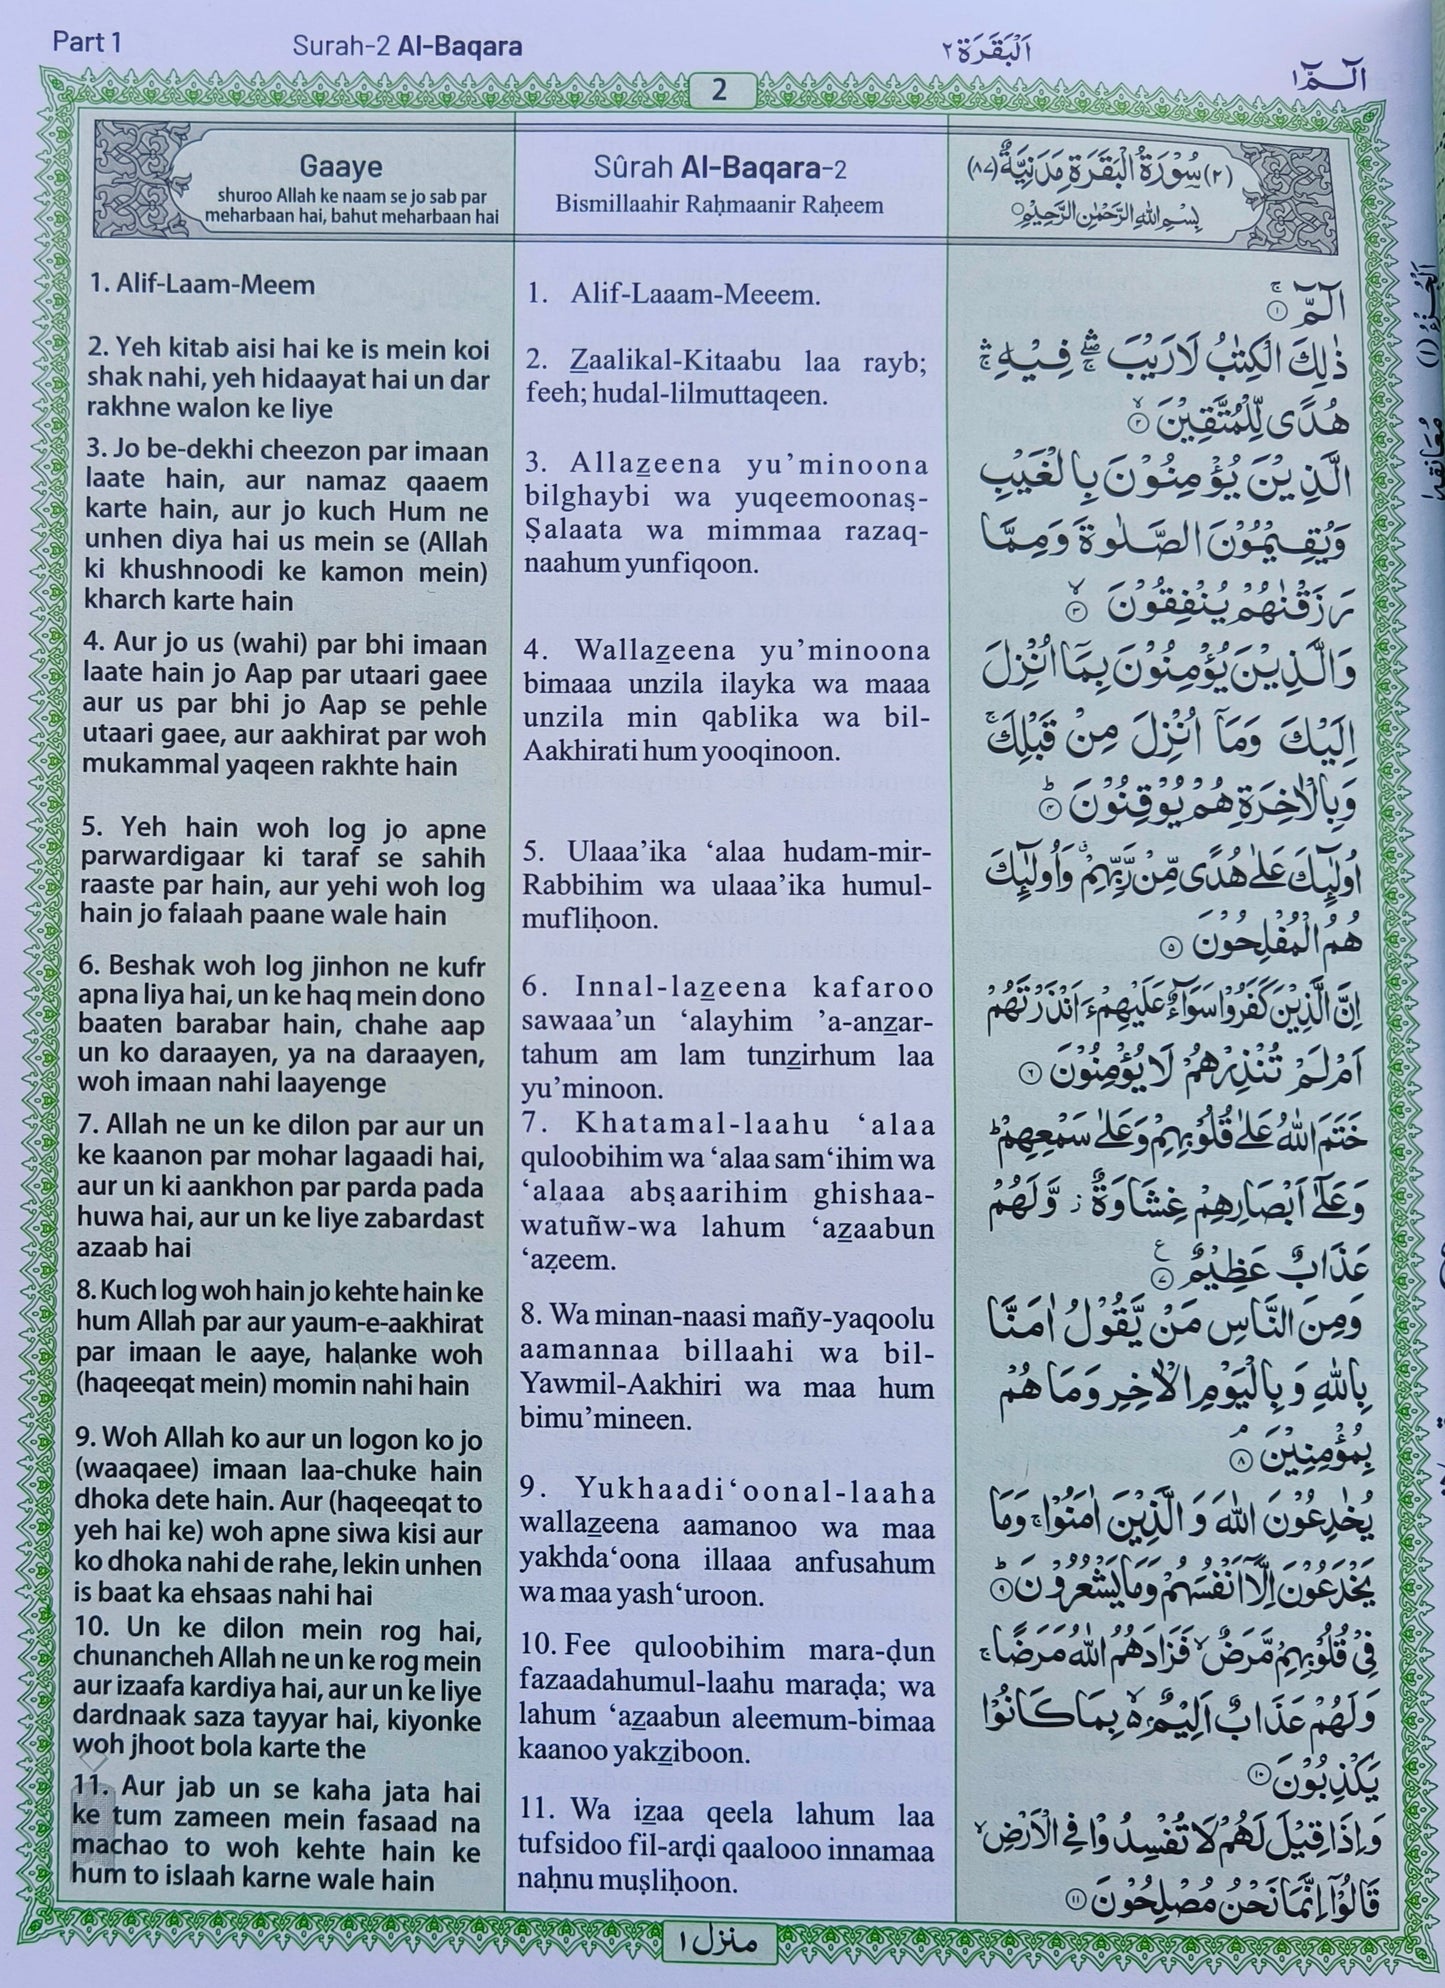 Part 1
Surah-2 Al-Baqara
اَلْبَقَرَة ٢
الٓـمّٓ ١
2
Gaaye
shuroo Allah ke naam se jo sab par
meharbaan hai, bahut meharbaan hai
1. Alif-Laam-Meem
2. Yeh kitab aisi hai ke is mein koi
shak nahi, yeh hidaayat hai un dar
rakhne walon ke liye
3. Jo be-dekhi cheezon par imaan
laate hain, aur namaz qaaem
karte hain, aur jo kuch Hum ne
unhen diya hai us mein se (Allah
ki khushnoodi ke kamon mein)
kharch karte hain
4. Aur jo us (wahi) par bhi imaan
laate hain jo Aap par utaari gaee
aur us par bhi jo Aap se pehle
utaari gaee, aur aakhirat par woh
mukammal yaqeen rakhte hain
5. Yeh hain woh log jo apne
parwardigaar ki taraf se sahih
raaste par hain, aur yehi woh log
hain jo falaah paane wale hain
6. Beshak woh log jinhon ne kufr
apna liya hai, un ke haq mein dono
baaten barabar hain, chahe aap
un ko daraayen, ya na daraayen,
woh imaan nahi laayenge
7. Allah ne un ke dilon par aur un
ke kaanon par mohar lagaadi hai,
aur un ki aankhon par parda pada
huwa hai, aur un ke liye zabardast
azaab hai
8. Kuch log woh hain jo kehte hain ke
hum Allah par aur yaum-e-aakhirat
par imaan le aaye, halanke woh
(haqeeqat mein) momin nahi hain
9. Woh Allah ko aur un logon ko jo
(waaqaee) imaan laa-chuke hain
dhoka dete hain. Aur (haqeeqat to
yeh hai ke) woh apne siwa kisi aur
ko dhoka nahi de rahe, lekin unhen
is baat ka ehsaas nahi hai
10. Un ke dilon mein rog hai,
chunancheh Allah ne un ke rog mein
aur izaafa kardiya hai, aur un ke liye
dardnaak saza tayyar hai, kiyonke
woh jhoot bola karte the
11. Aur jab un se kaha jata hai
ke tum zameen mein fasaad na
machao to woh kehte hain ke
hum to islaah karne wale hain
Sûrah Al-Baqara-2
Bismillaahir Raḥmaanir Raḥeem
1. Alif-Laaam-Meeem.
2. Z̲aalikal-Kitaabu laa rayb;
feeh; hudal-lilmuttaqeen.
3. Allaz̲eena yu’minoona
bilghaybi wa yuqeemoonaṣ-
Ṣalaata wa mimmaa razaq-
naahum yunfiqoon.
4. Wallaz̲eena yu’minoona
bimaaa unzila ilayka wa maaa
unzila min qablika wa bil-
Aakhirati hum yooqinoon.
5. Ulaaa’ika ‘alaa hudam-mir-
Rabbihim wa ulaaa’ika humul-
mufliḥoon.
6. Innal-laz̲eena kafaroo
sawaaa’un ‘alayhim ’a-anz̲ar-
tahum am lam tunz̲irhum laa
yu’minoon.
7. Khatamal-laahu ‘alaa
quloobihim wa ‘alaa sam‘ihim wa
‘alaaa abṣaarihim ghishaa-
watuñw-wa lahum ‘az̲aabun
‘aẓeem.
8. Wa minan-naasi mañy-yaqoolu
aamannaa billaahi wa bil-
Yawmil-Aakhiri wa maa hum
bimu’mineen.
9. Yukhaadi‘oonal-laaha
wallaz̲eena aamanoo wa maa
yakhda‘oona illaaa anfusahum
wa maa yash‘uroon.
10. Fee quloobihim mara-ḍun
fazaadahumul-laahu maraḍa; wa
lahum ‘az̲aabun aleemum-bimaa
kaanoo yakz̲iboon.
11. Wa iz̲aa qeela lahum laa
tufsidoo fil-arḍi qaalooo innamaa
naḥnu muṣliḥoon.
(٢) سُوْرَةُ الْبَقَرَةِ مَدَنِيَّةٌ (٨٧)
بِسْمِ اللهِ الرَّحْمٰنِ الرَّحِيْمِ
الٓمّٓ ۚ ١
ذٰلِكَ الْكِتٰبُ لَا رَيْبَ ۛۖ فِيْهِ ۛۚ
هُدًى لِّلْمُتَّقِيْنَ ۙ ٢
الَّذِيْنَ يُؤْمِنُوْنَ بِالْغَيْبِ
وَيُقِيْمُوْنَ الصَّلٰوةَ وَمِمَّا
رَزَقْنٰهُمْ يُنْفِقُوْنَ ۙ ٣
وَالَّذِيْنَ يُؤْمِنُوْنَ بِمَا اُنْزِلَ
اِلَيْكَ وَمَآ اُنْزِلَ مِنْ قَبْلِكَ ۚ
وَبِالْاٰخِرَةِ هُمْ يُوْقِنُوْنَ ؕ ٤
اُولٰٓئِكَ عَلٰى هُدًى مِّنْ رَّبِّهِمْ ۗ وَاُولٰٓئِكَ
هُمُ الْمُفْلِحُوْنَ ٥
اِنَّ الَّذِيْنَ كَفَرُوْا سَوَآءٌ عَلَيْهِمْ ءَاَنْذَرْتَهُمْ
اَمْ لَمْ تُنْذِرْهُمْ لَا يُؤْمِنُوْنَ ٦
خَتَمَ اللهُ عَلٰى قُلُوْبِهِمْ وَعَلٰى سَمْعِهِمْ ؕ
وَعَلٰٓى اَبْصَارِهِمْ غِشَاوَةٌ ز وَّلَهُمْ
عَذَابٌ عَظِيْمٌ ٧ ع
وَمِنَ النَّاسِ مَنْ يَّقُوْلُ اٰمَنَّا
بِاللهِ وَبِالْيَوْمِ الْاٰخِرِ وَمَا هُمْ
بِمُؤْمِنِيْنَ ۘ ٨
يُخٰدِعُوْنَ اللهَ وَالَّذِيْنَ اٰمَنُوْا ۚ وَمَا
يَخْدَعُوْنَ اِلَّآ اَنْفُسَهُمْ وَمَا يَشْعُرُوْنَ ؕ ٩
فِيْ قُلُوْبِهِمْ مَّرَضٌ ۙ فَزَادَهُمُ اللهُ مَرَضًا ۚ
وَلَهُمْ عَذَابٌ اَلِيْمٌ ۢ ۙ بِمَا كَانُوْا
يَكْذِبُوْنَ ١٠
وَاِذَا قِيْلَ لَهُمْ لَا تُفْسِدُوْا فِي الْاَرْضِ ۙ
قَالُوْٓا اِنَّمَا نَحْنُ مُصْلِحُوْنَ ١١
منزل ١